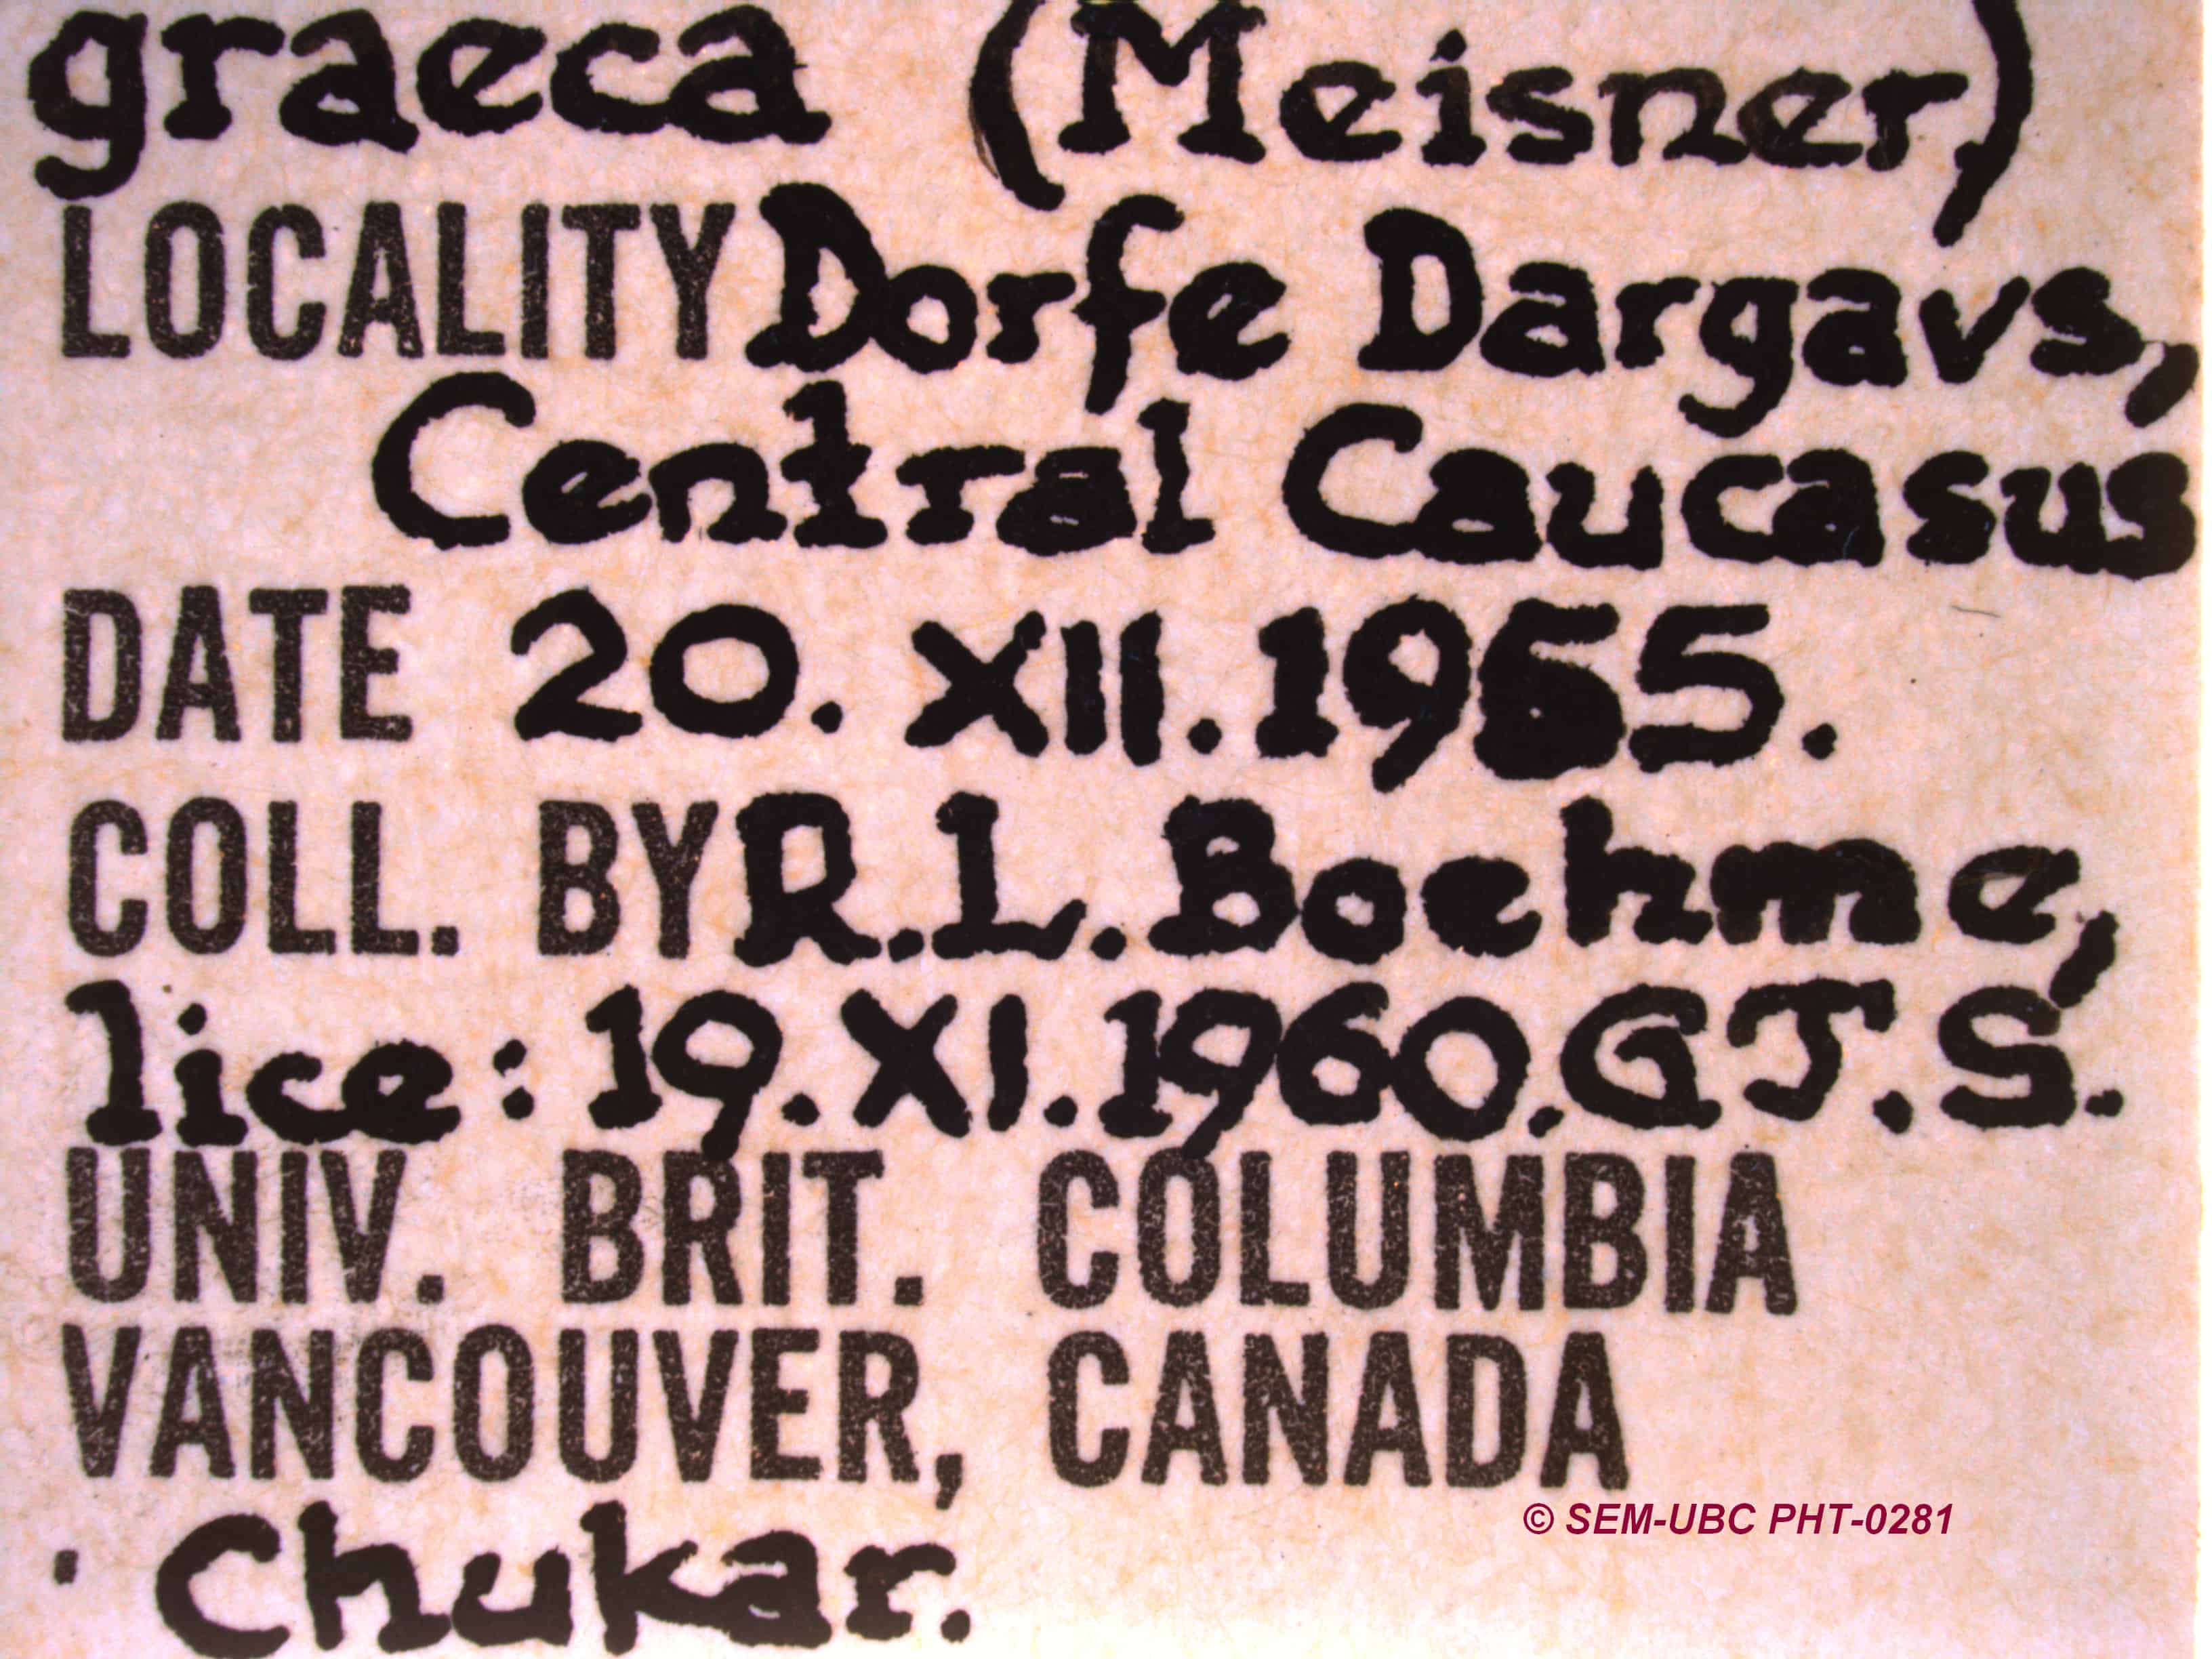 graeca (Meisner)
LOCALITY Dorfe Dargavs,
Central Caucasus
DATE 20. XII. 1955.
COLL. BY R.L. Boehme,
lice: 19. XI. 1960. G J. S.
UNIV. BRIT. COLUMBIA
VANCOUVER, CANADA
© SEM-UBC PHT-0281
Chukar.